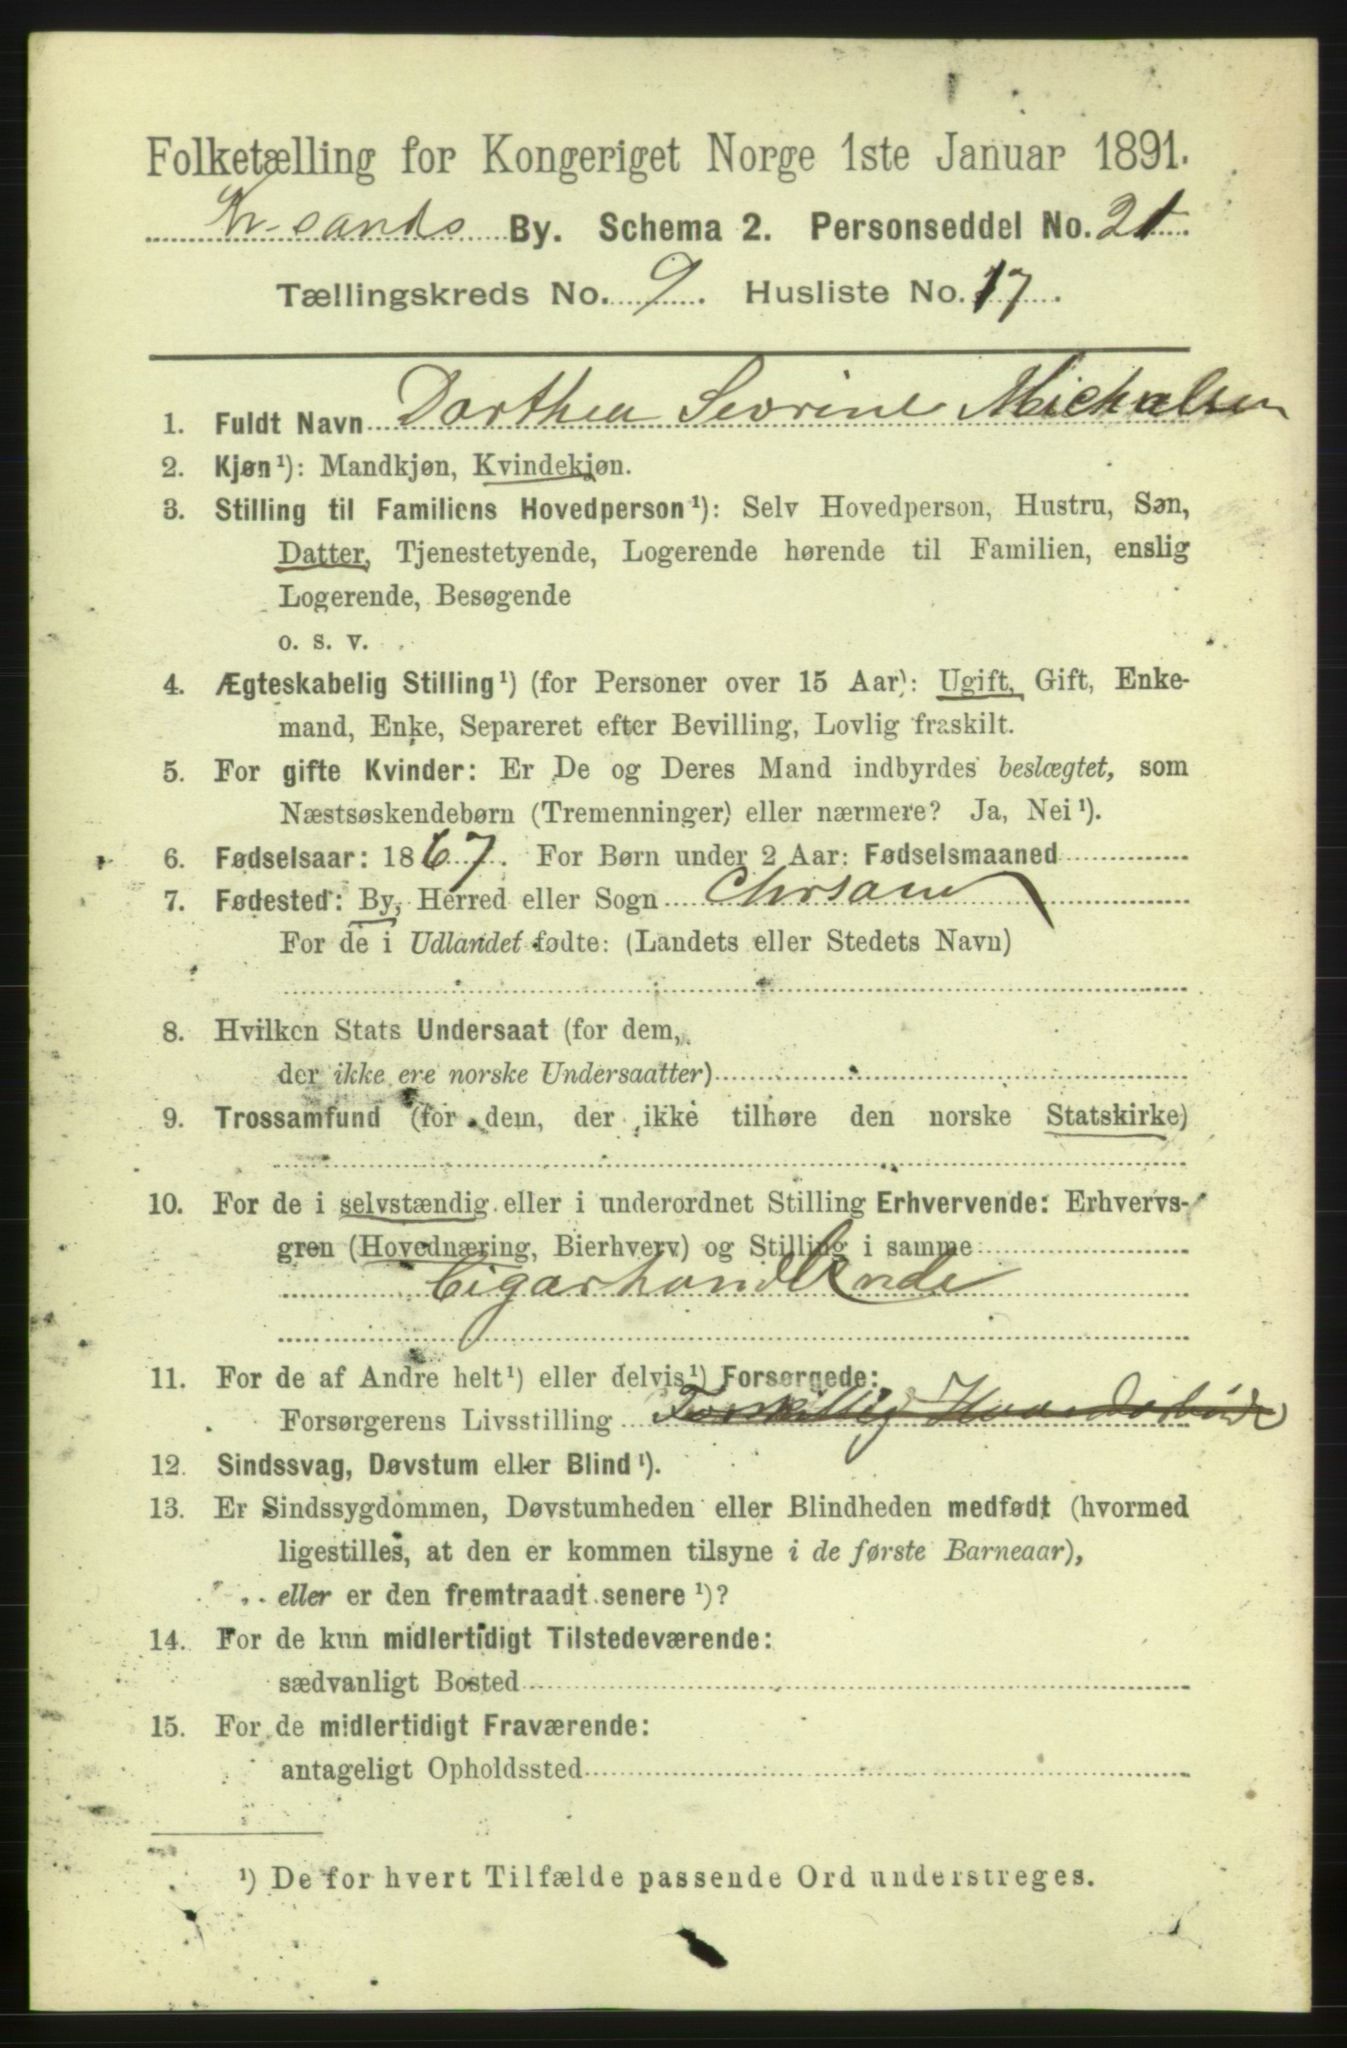 Folketælling for Kongeriget Norge 1ste Januar 1891.
Kr-sands By. Schema 2. Personseddel No. 21.
Tællingskreds No. 9. Husliste No. 17.
1. Fuldt Navn Dorthea Sevrine Michalsen
2. Kjøn¹): Mandkjøn, Kvindekjøn.
3. Stilling til Familiens Hovedperson¹): Selv Hovedperson, Hustru, Søn,
Datter, Tjenestetyende, Logerende hørende til Familien, enslig
Logerende, Besøgende
o. s. v.
4. Ægteskabelig Stilling¹) (for Personer over 15 Aar): Ugift, Gift, Enke-
mand, Enke, Separeret efter Bevilling, Lovlig fraskilt.
5. For gifte Kvinder: Er De og Deres Mand indbyrdes beslægtet, som
Næstsøskendebørn (Tremenninger) eller nærmere? Ja, Nei¹).
6. Fødselsaar: 1867. For Børn under 2 Aar: Fødselsmaaned
7. Fødested: By, Herred eller Sogn Chrsand
For de i Udlandet fødte: (Landets eller Stedets Navn)
8. Hvilken Stats Undersaat (for dem,
der ikke ere norske Undersaatter)
9. Trossamfund (for dem, der ikke tilhøre den norske Statskirke)
10. For de i selvstændig eller i underordnet Stilling Erhvervende: Erhvervs-
gren (Hovednæring, Bierhverv) og Stilling i samme
Cigarhandlende
11. For de af Andre helt¹) eller delvis¹) Forsørgede:
Forsørgerens Livsstilling
12. Sindssvag, Døvstum eller Blind¹).
13. Er Sindssygdommen, Døvstumheden eller Blindheden medfødt (hvormed
ligestilles, at den er kommen tilsyne i de første Barneaar),
eller er den fremtraadt senere¹)?
14. For de kun midlertidigt Tilstedeværende:
sædvanligt Bosted
15. For de midlertidigt Fraværende:
antageligt Opholdssted
¹) De for hvert Tilfælde passende Ord understreges.